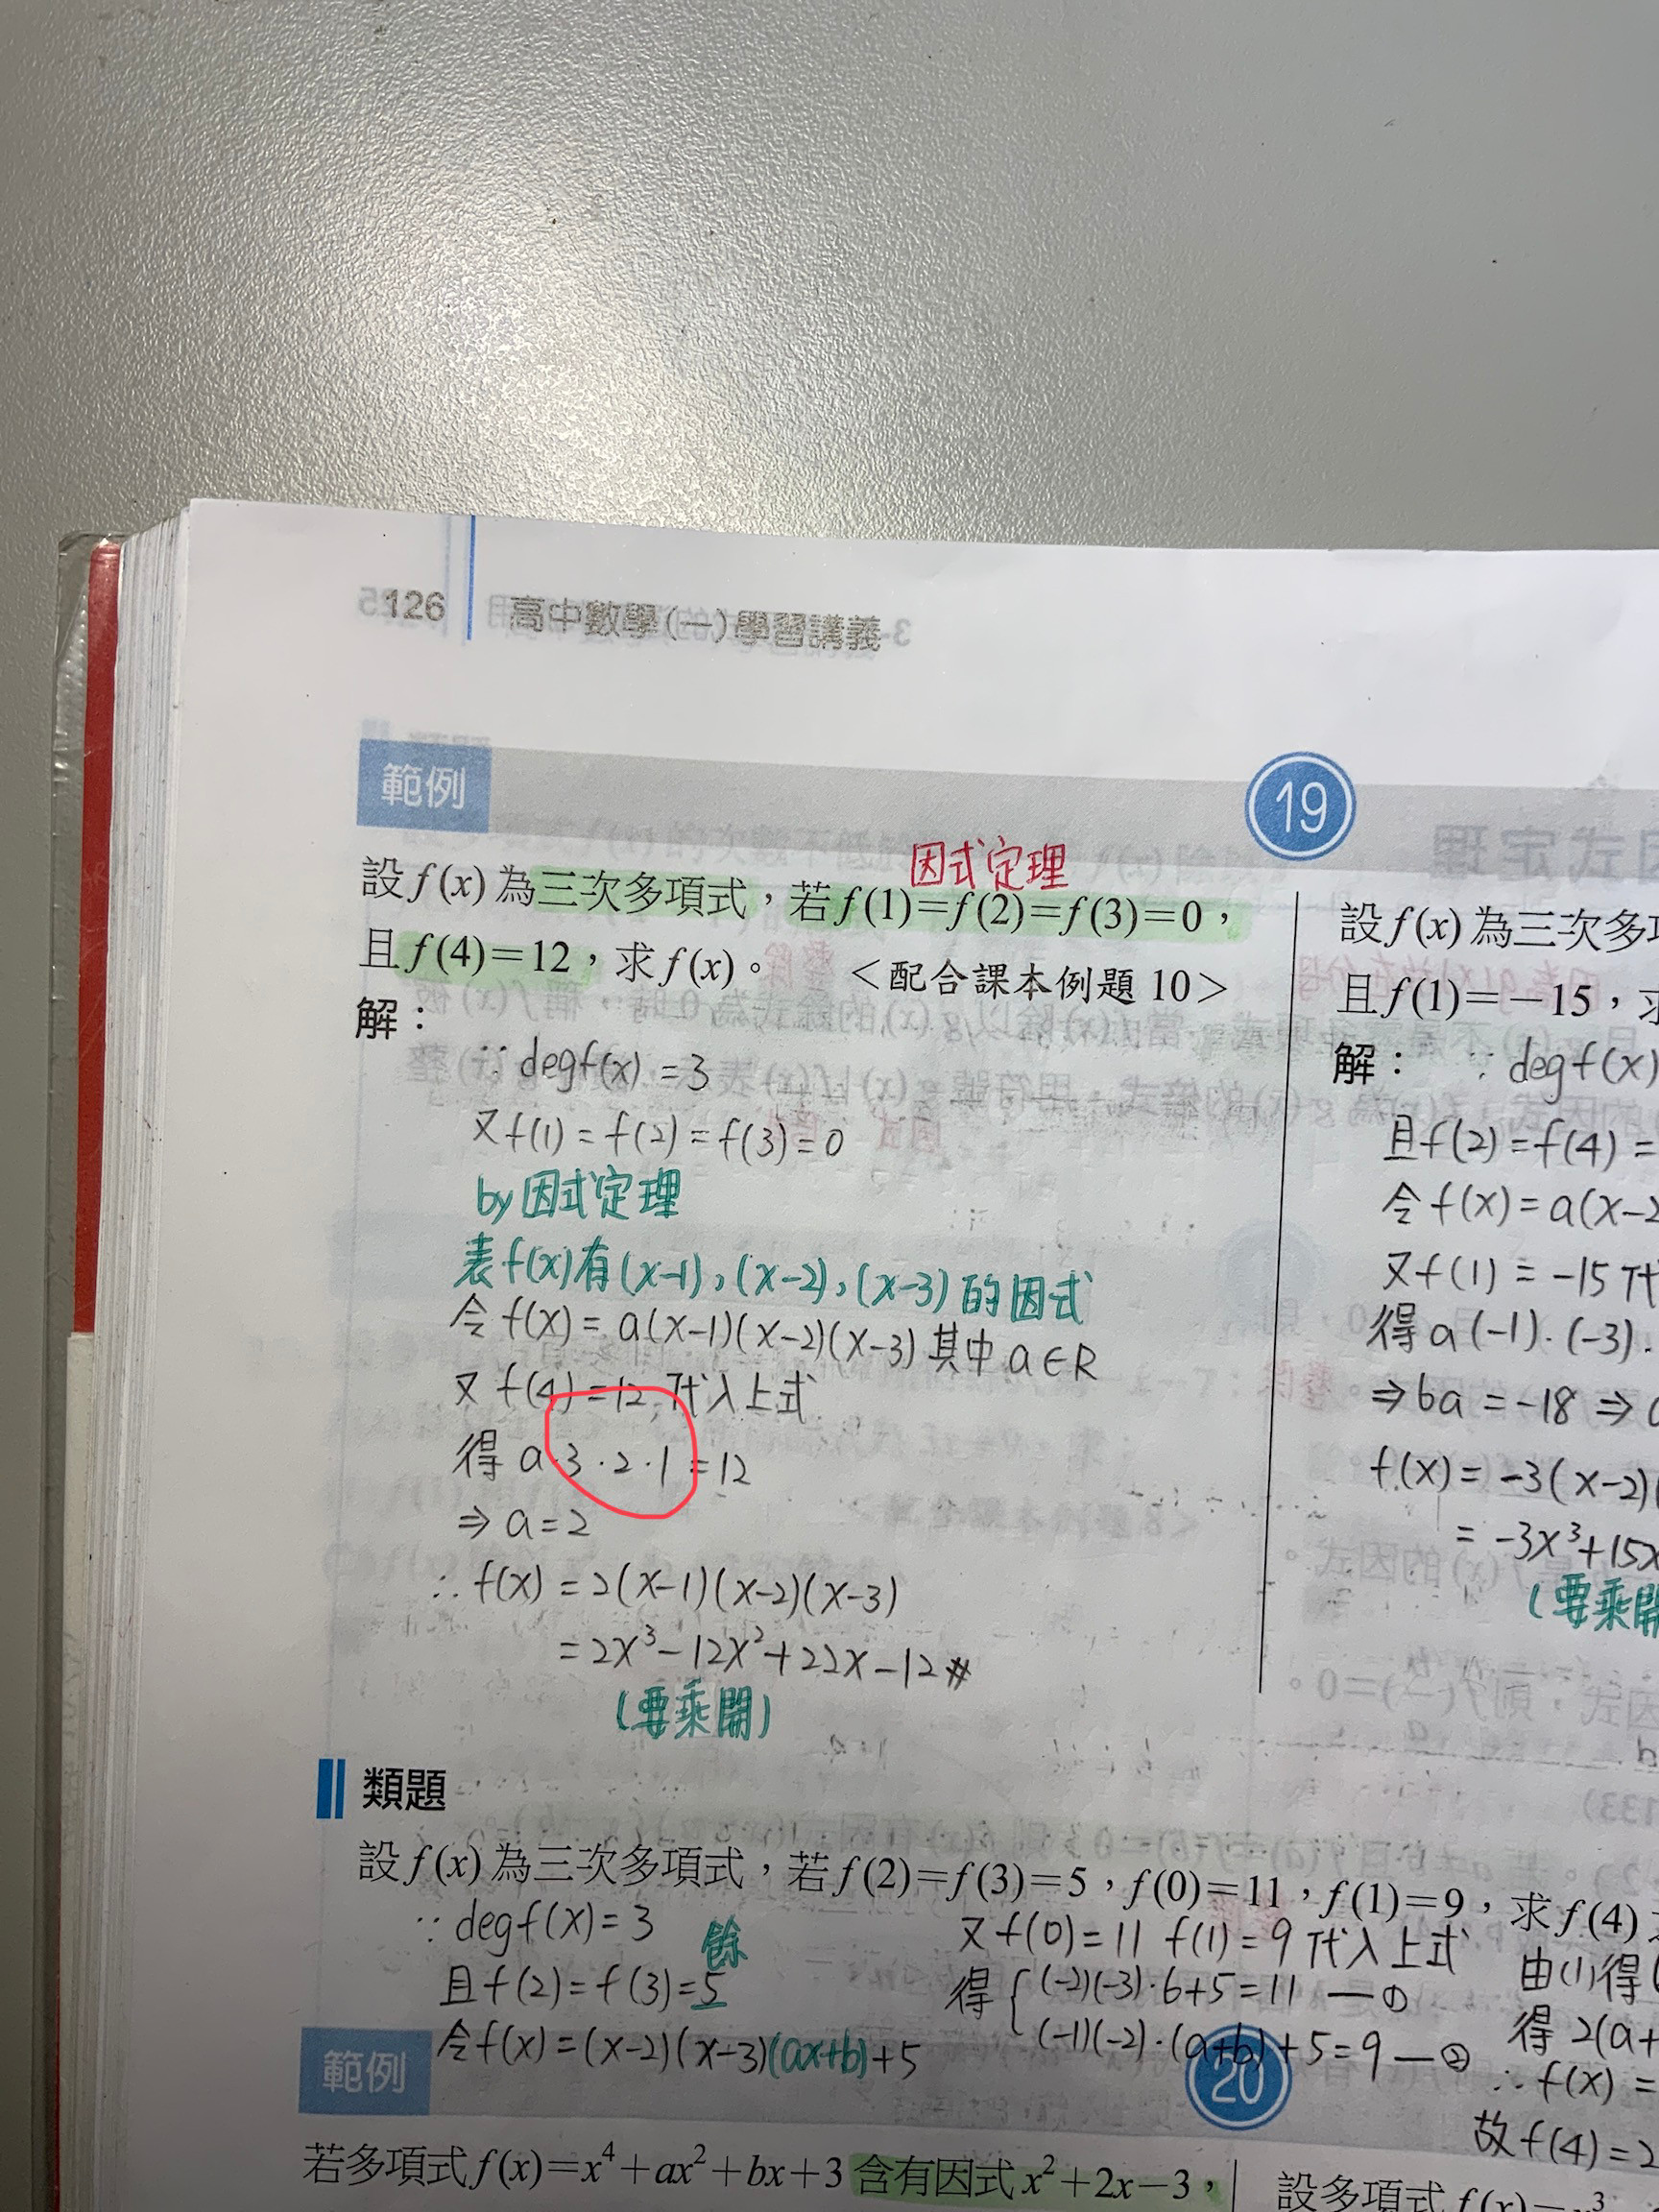 126 高中數學(一)學習講義
範例 19
因式定理
設 f(x) 為三次多項式，若 f(1)=f(2)=f(3)=0，
且 f(4)=12，求 f(x)。 <配合課本例題 10>
解：
∵ degf(x) = 3
又f(1) = f(2) = f(3) = 0
by因式定理
表f(x)有(x-1), (x-2), (x-3)的因式
令 f(x) = a(x-1)(x-2)(x-3) 其中 a∈R
又 f(4) = 12, 代入上式
得 a·3·2·1 = 12
⇒ a = 2
∴ f(x) = 2(x-1)(x-2)(x-3)
= 2x³-12x²+22x-12 #
(要乘開)
設 f(x) 為三次多項
且 f(1)=-15，求
解： ∵ degf(x)
且f(2) = f(4) =
令 f(x) = a(x-2
又f(1) = -15 代
得 a(-1)·(-3)·
⇒ 6a = -18 ⇒
f(x) = -3(x-2)(
= -3x³+15x
(要乘開
類題
設 f(x) 為三次多項式，若 f(2)=f(3)=5，f(0)=11，f(1)=9，求 f(4)
∵ degf(x) = 3
餘
且f(2) = f(3) = 5
令f(x) = (x-2)(x-3)(ax+b)+5
又f(0) = 11 f(1) = 9 代入上式
得 { (-2)(-3)·b+5 = 11 —①
(-1)(-2)·(a+b)+5 = 9 —②
由(1)得
得 2(a+
∴ f(x) =
故f(4) = 2
範例 20
若多項式 f(x)=x⁴+ax²+bx+3 含有因式 x²+2x-3，
設多項式 f(x)=x³